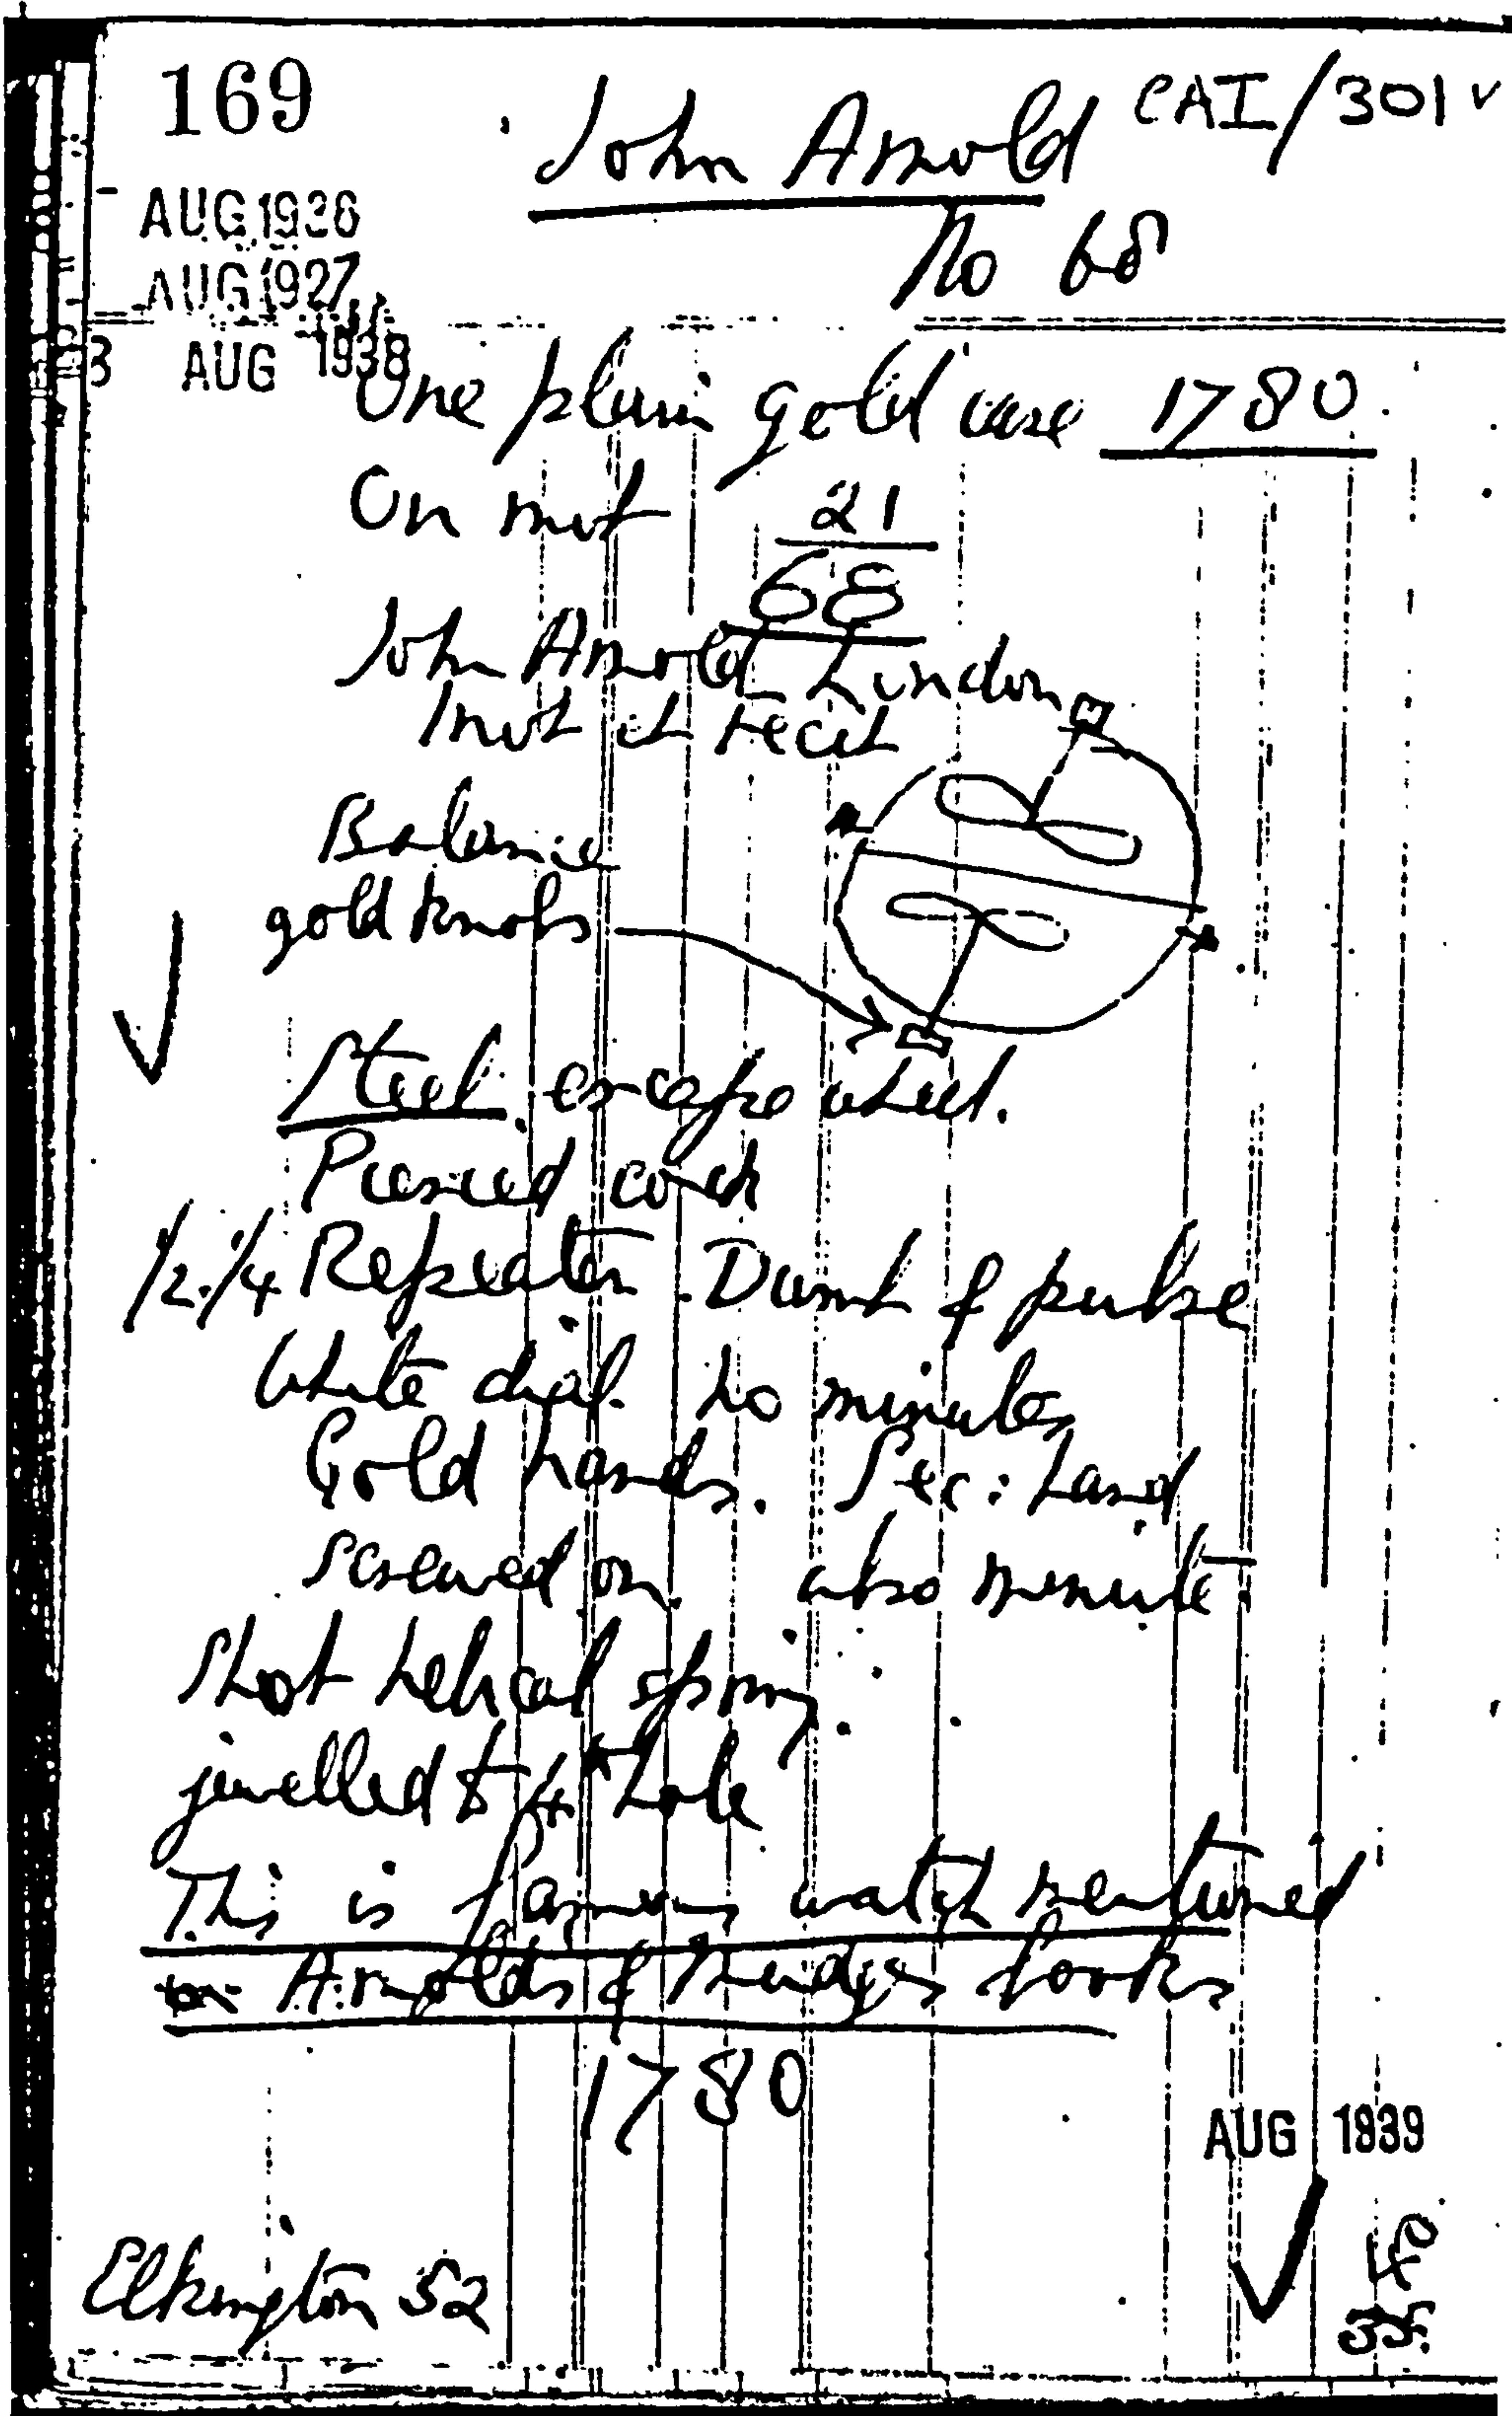 169
CAI/301 ✓
John Arnold
No 68
AUG 1926
AUG 1927
AUG 1938
One plain gold case 1780.
On mvt 21
68
John Arnold London
Invt et Fecit
Balance
gold knobs
Steel escape wheel.
Pierced cock
1/2 1/4 Repeater. Dumb & pulse
White dial. no minutes
Gold hands. Sec: hand
screwed on also minute
Short helical spring.
jewelled to 4th hole
This is famous watch mentioned
Arnolds & books
1780
AUG 1939
Elkington 52
35